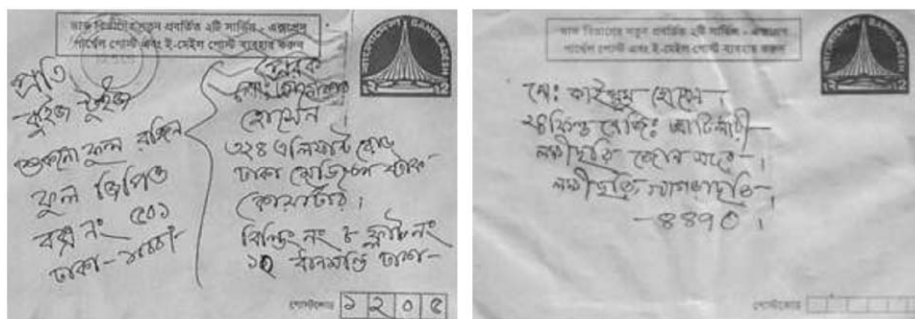 ডাক বিভাগের নতুন প্রবর্তিত ২টি সার্ভিস - এক্সপ্রেস
পার্শ্বেল পোস্ট এবং ই-মেইল পোস্ট ব্যবহার করুন
BANGLADESH
প্রতি
কুইজ টুইজ
শুকনো ফুল রঙ্গিন
ফুল জিপিও
বক্স নং ৫০১
ঢাকা-
প্রেরক
হোসেন
৩২৪ এলিফ্যান্ট রোড
ঢাকা স্টাফ
কোয়ার্টার।
বিল্ডিং নং ৪ ফ্লাট নং
১২ ঢাকা-
পোস্টকোড ১২০৫
ডাক বিভাগের নতুন প্রবর্তিত ২টি সার্ভিস - এক্সপ্রেস
পার্শ্বেল পোস্ট এবং ই-মেইল পোস্ট ব্যবহার করুন
BANGLADESH
মো: কাইয়ুম হোসেন।
২৪ফিল্ড রেজি: আর্টিলারী-
লক্ষীছড়ি জোন সদর-।
লক্ষীছড়ি, খাগড়াছড়ি-
-৪৪৭০।
পোস্টকোড